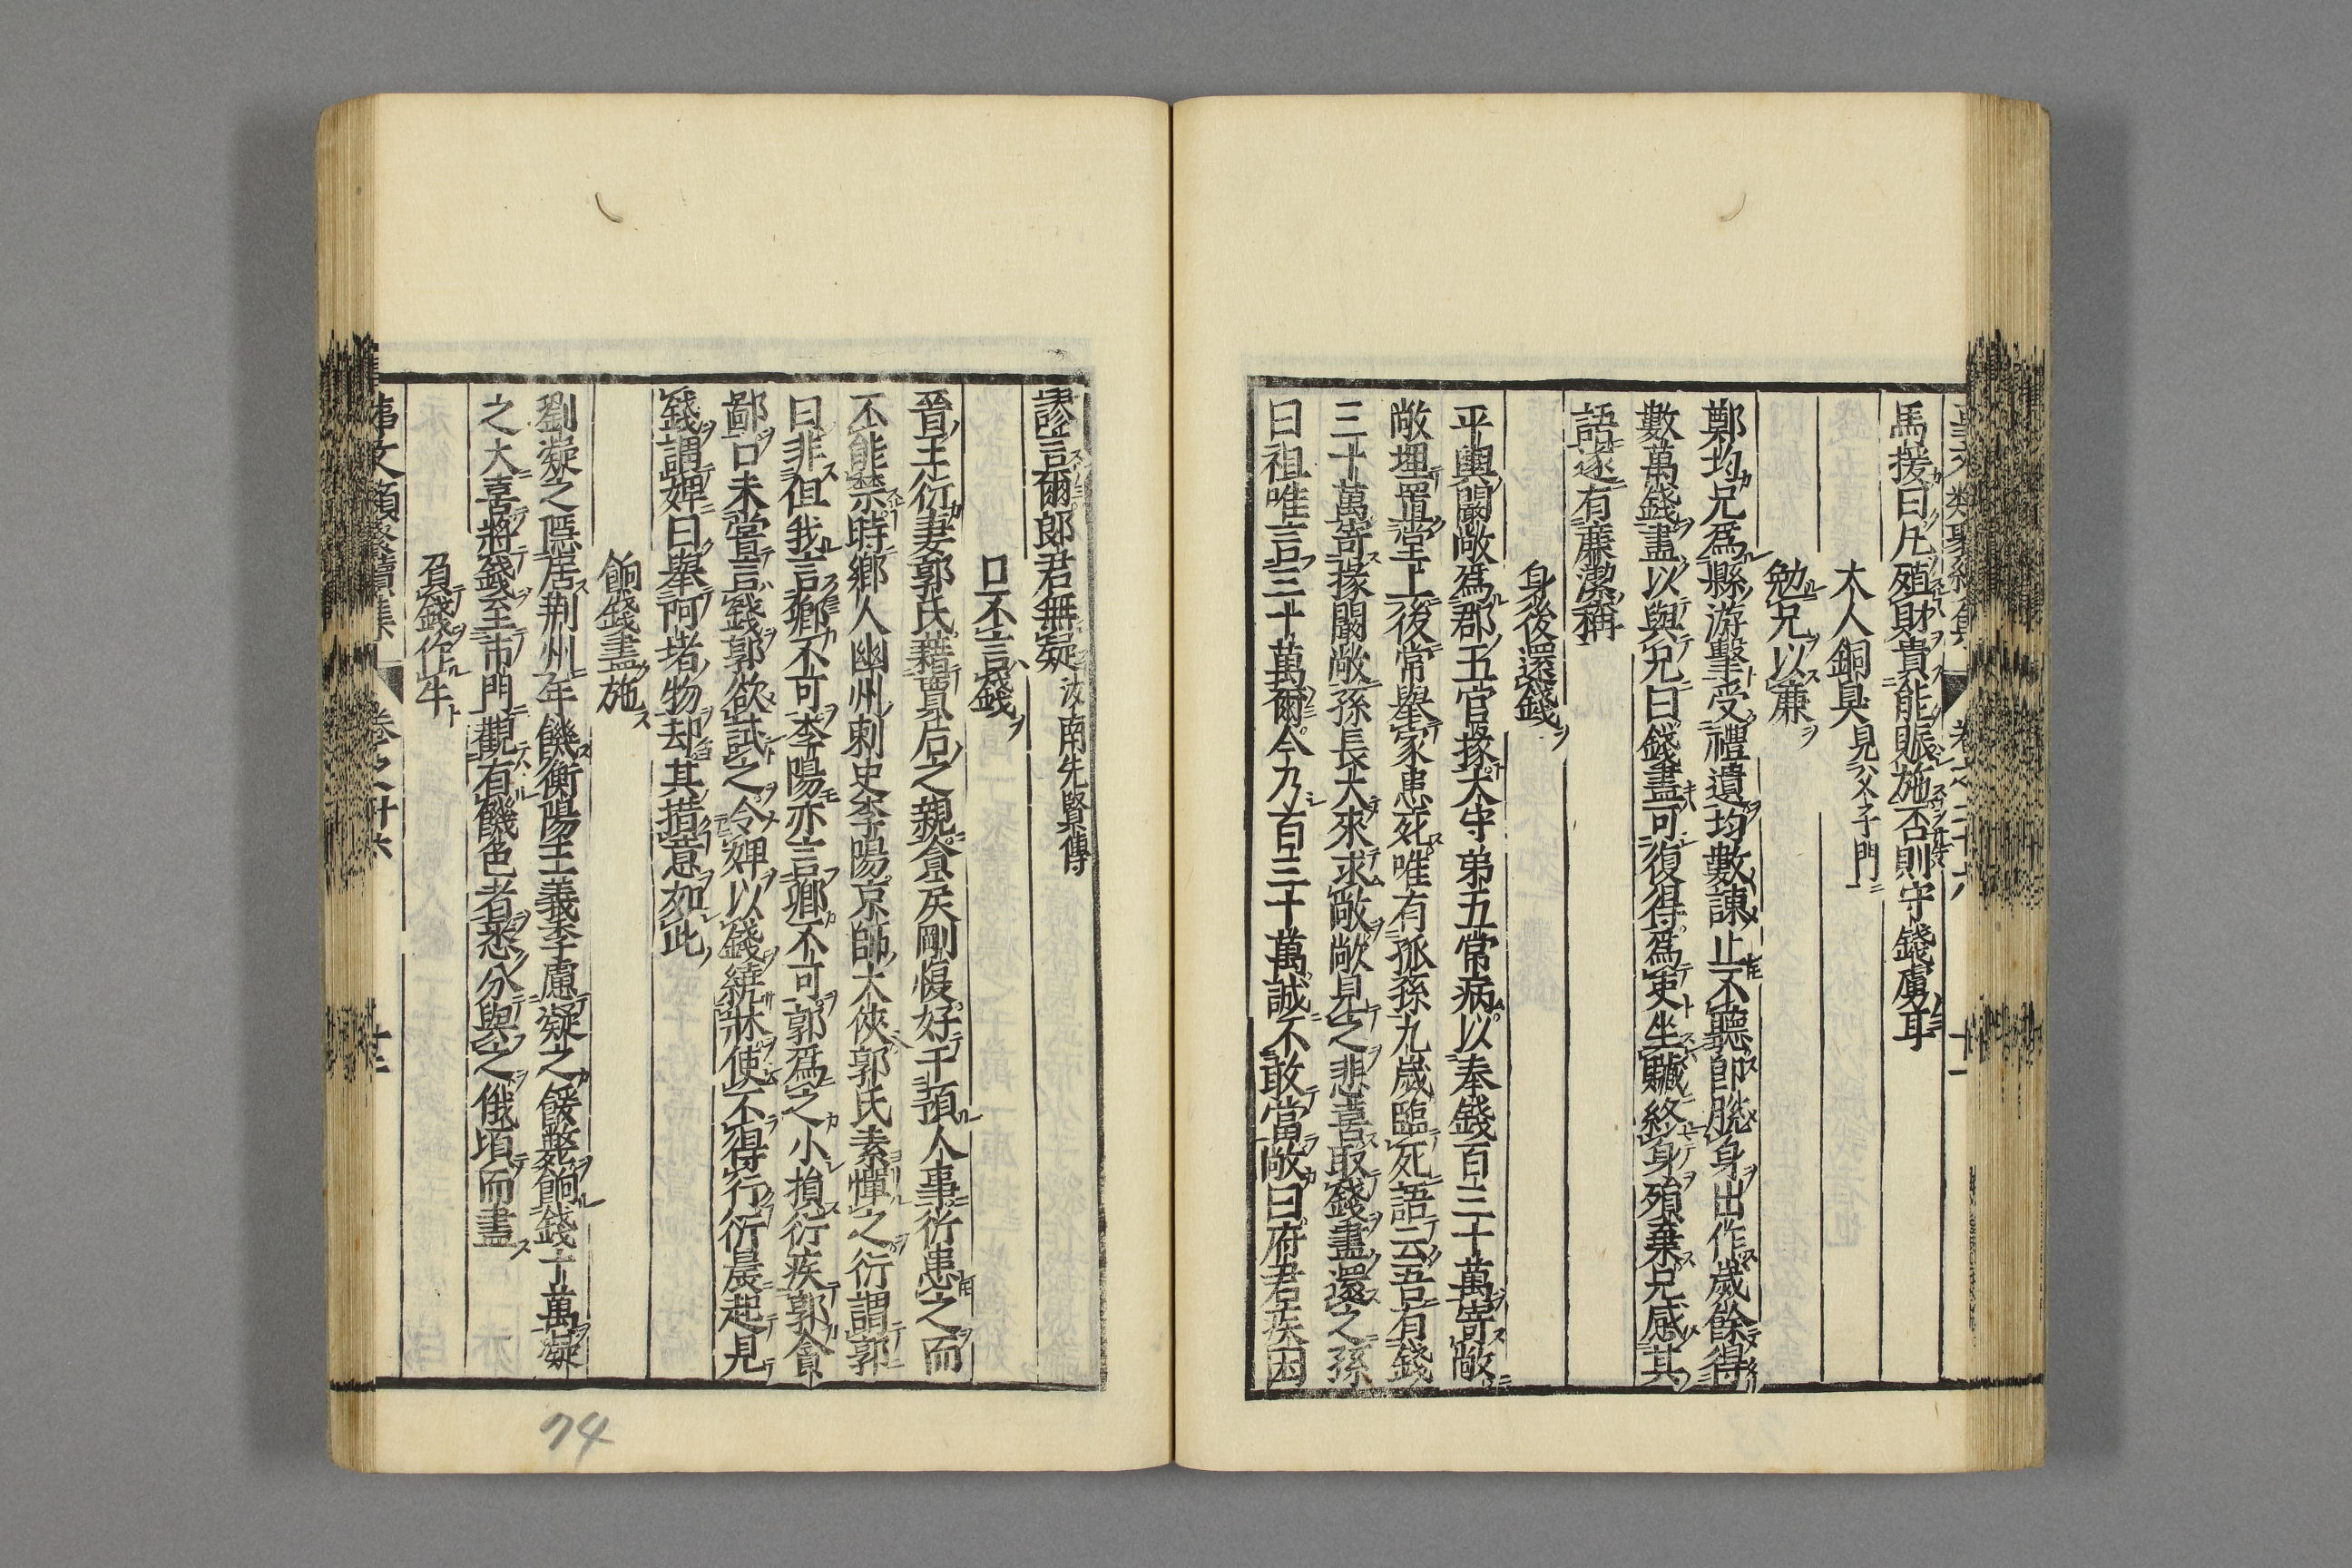 馬援曰凡殖財貴能賑施否則守錢虜耳
大人銅臭見父子門
勉兄以廉
鄭均兄爲縣游擊受禮遺均數諫止不聽即脫身出作歲餘得
數萬錢盡以與兄曰錢盡可復得爲吏坐贓終身殞棄兄感其
語遂有廉潔稱
身後還錢
平輿闞敞爲郡五官掾太守弟五常病以奉錢百三十萬寄敞
敞埋置堂上後常舉家患死唯有孤孫九歲臨死語云吾有錢
三十萬寄掾闞敞孫長大來求敞敞見之悲喜取錢盡還之孫
曰祖唯言三十萬爾今乃百三十萬誠不敢當敞曰府君疾困
謬言爾郎君無疑汝南先賢傳
口不言錢
晉王衍妻郭氏藉賈后之親貪戾剛愎好干預人事衍患之而
不能禁時鄉人幽州刺史李陽京師大俠郭氏素憚之衍謂郭
曰非但我言卿不可李陽亦言卿不可郭爲之小損衍疾郭貪
鄙口未嘗言錢郭欲試之令婢以錢繞牀使不得行衍晨起見
錢謂婢曰舉阿堵物却其措意如此
餉錢盡施
劉凝之隱居荆州年饑衡陽王義季慮凝之餒斃餉錢十萬凝
之大喜將錢至市門觀有饑色者悉分與之俄頃而盡
負錢作牛
事文類聚續集 卷之廿六
74